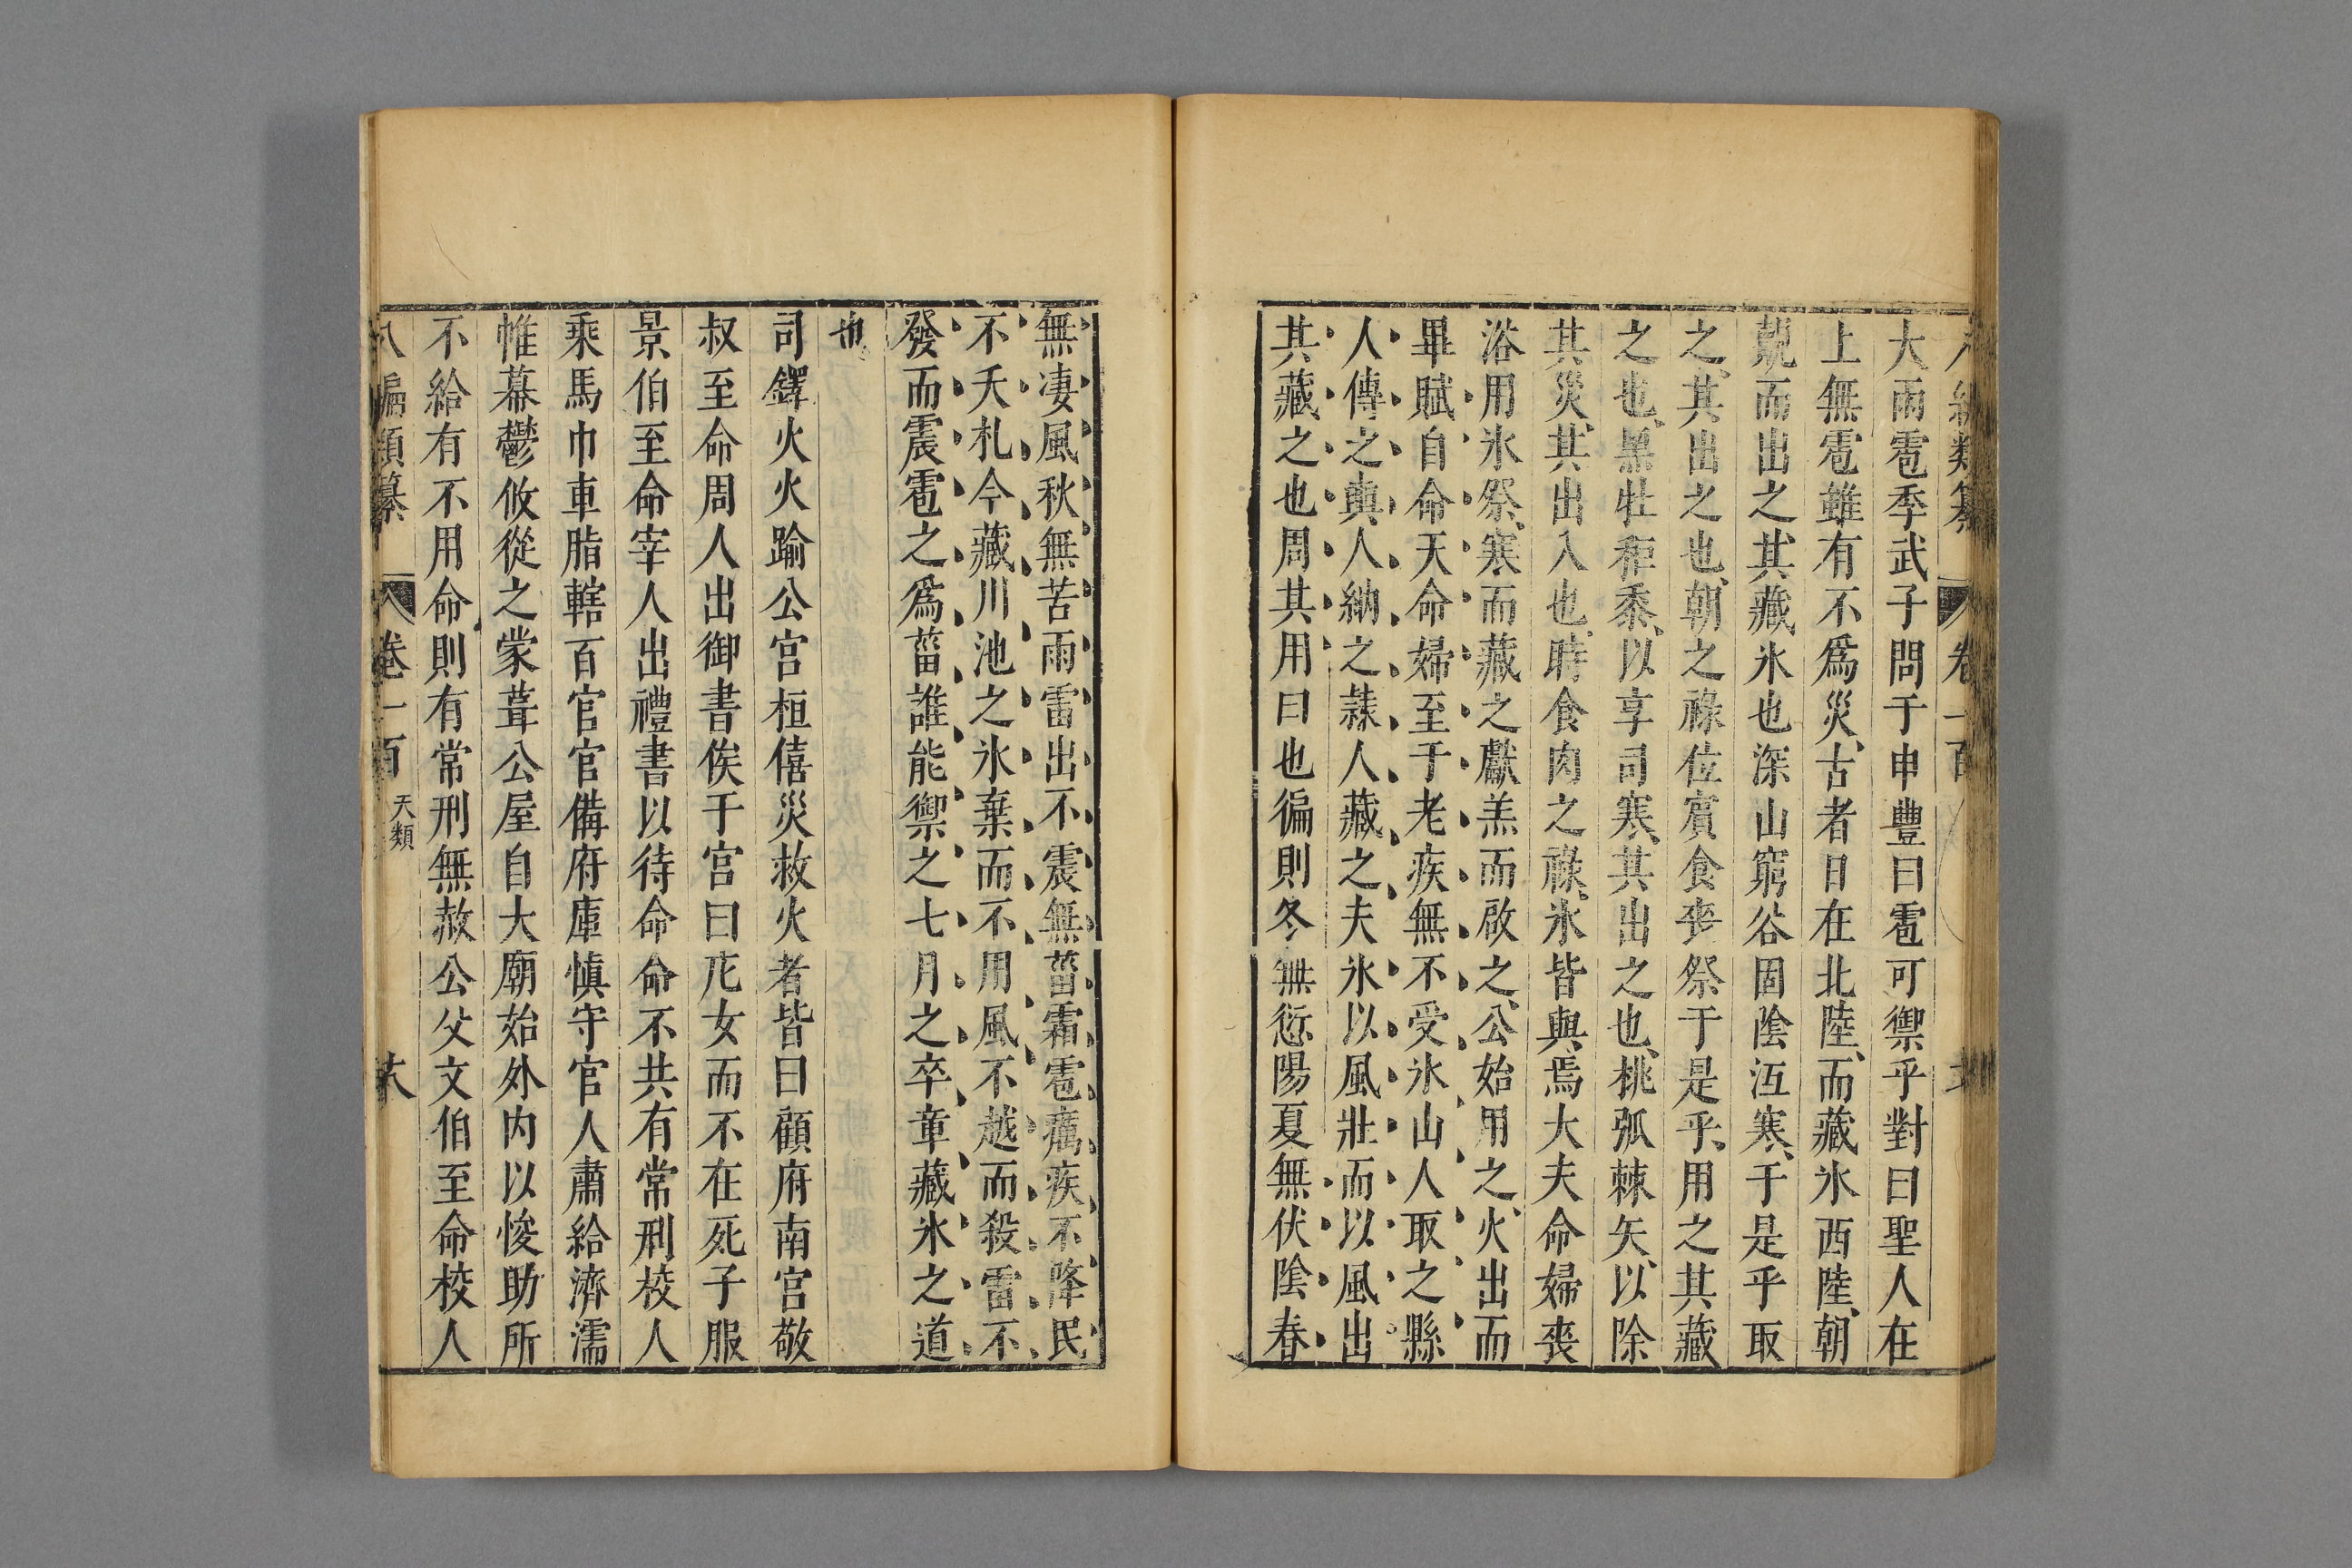 大雨雹季武子問于申豐曰雹可禦乎對曰聖人在
上無雹雖有不爲災古者日在北陸而藏氷西陸朝
覿而出之其藏氷也深山窮谷固陰沍寒于是乎取
之其出之也朝之祿位賓食喪祭于是乎用之其藏
之也黑牡秬黍以享司寒其出之也桃弧棘矢以除
其災其出入也時食肉之祿氷皆與焉大夫命婦喪
浴用氷祭寒而藏之獻羔而啟之公始用之火出而
畢賦自命天命婦至于老疾無不受氷山人取之縣
人傳之輿人納之隷人藏之夫氷以風壯而以風出
其藏之也周其用曰也徧則冬無愆陽夏無伏陰春
無凄風秋無苦雨雷出不震無菑霜雹癘疾不降民
不夭札今藏川池之氷棄而不用風不越而殺雷不
發而震雹之爲菑誰能禦之七月之卒章藏氷之道
也
司鐸火火踰公宮桓僖災救火者皆曰顧府南宮敬
叔至命周人出御書俟于宮曰庀女而不在死子服
景伯至命宰人出禮書以待命命不共有常刑校人
乘馬巾車脂轄百官官備府庫慎守官人肅給濟濡
帷幕鬱攸從之蒙葺公屋自大廟始外內以悛助所
不給有不用命則有常刑無赦公父文伯至命校人
八編類纂 卷一百 天類